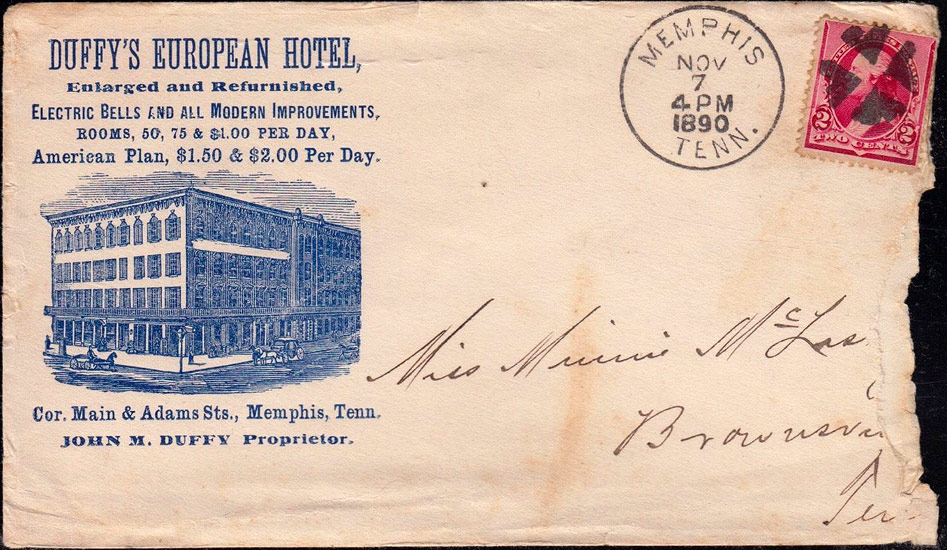 DUFFY'S EUROPEAN HOTEL,
Enlarged and Refurnished,
ELECTRIC BELLS AND ALL MODERN IMPROVEMENTS,
ROOMS, 50, 75 & $1.00 PER DAY,
American Plan, $1.50 & $2.00 Per Day.
Cor. Main & Adams Sts., Memphis, Tenn.
JOHN M. DUFFY Proprietor.
MEMPHIS
NOV
7
4 PM
1890
TENN.
2 2
TWO CENTS
Miss Minnie
Brownsv
Ten